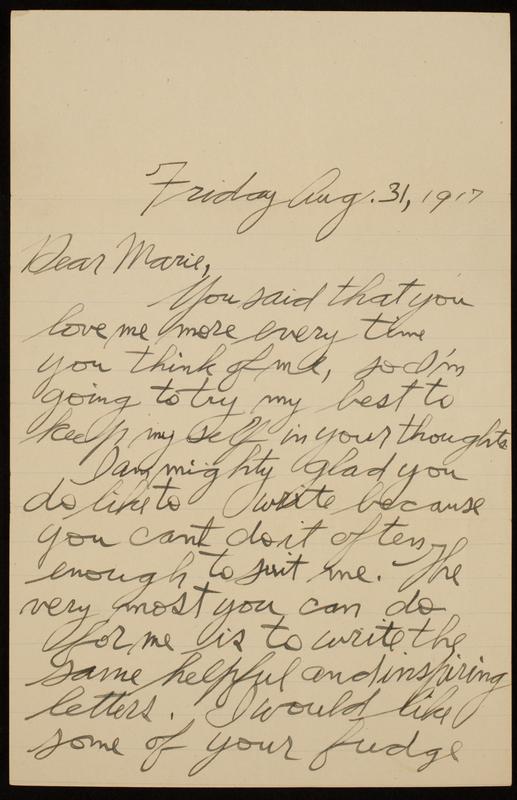 Friday Aug. 31, 1917
Dear Marie,
You said that you
love me more every time
you think of me, so I'm
going to try my best to
keep myself in your thoughts.
I am mighty glad you
do like to write because
you cant do it often
enough to suit me. The
very most you can do
for me is to write the
same helpful and inspiring
letters. I would like
some of your fudge